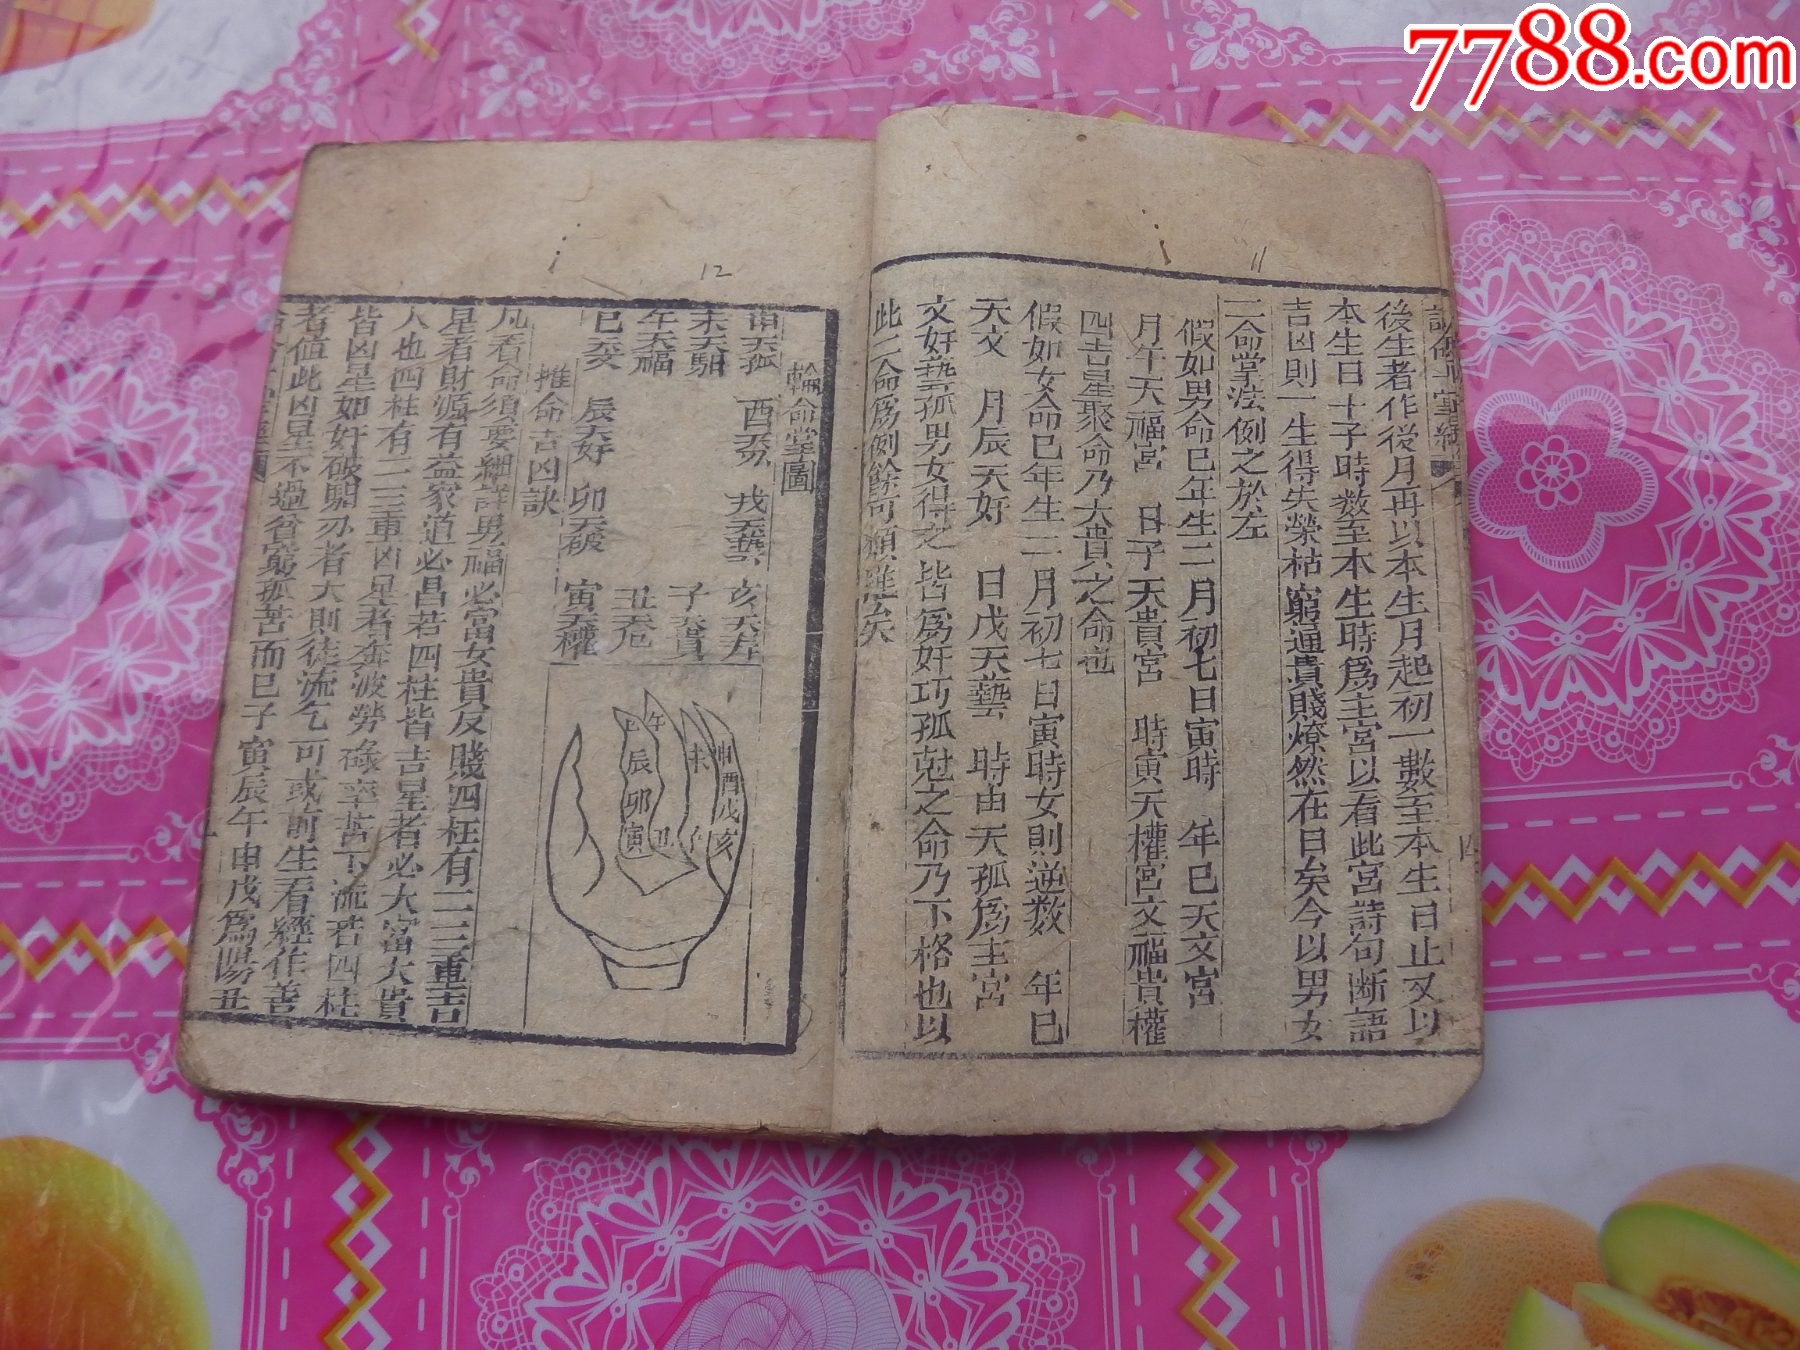 7788.com
11
後生者作從月再以本生月起初一數至本生日止又以
本生日十子時数至本生時爲主宮以看此宮詩句断語
吉凶則一生得失榮枯窮通貴賤燎然在目矣今以男女
二命掌法例之於左
假如男命巳年生二月初七日寅時 年巳天文宮
月午天福宮 日子天貴宮 時寅天權宮文福貴權
四吉星聚命乃大貴之命也
假如女命巳年生二月初七日寅時女則逆数 年巳
天文 月辰天奸 日戊天藝 時申天孤爲主宮
文奸藝孤男女得之皆爲奸巧孤尅之命乃下格也以
此二命爲例餘可類推矣
四
12
輪命掌圖
申天孤 酉天刃 戌天藝 亥天寿
未天駅 子天貴
午天福 丑天厄
巳天文 辰天奸 卯天破 寅天權
申酉戌亥
未 子
午 丑
巳辰卯寅
推命吉凶訣
凡看命須要細詳男福必富女貴反賤四柱有二三重吉
星者財源有益家道必昌若四柱皆吉星者必大富大貴
人也四柱有二三重凶星者奔波勞碌辛苦下流若四柱
皆凶星如奸破駅刃者大則徒流乞可或前生看經作善
者值此凶星不過貧窮孤苦而已子寅辰午申戌爲陽丑